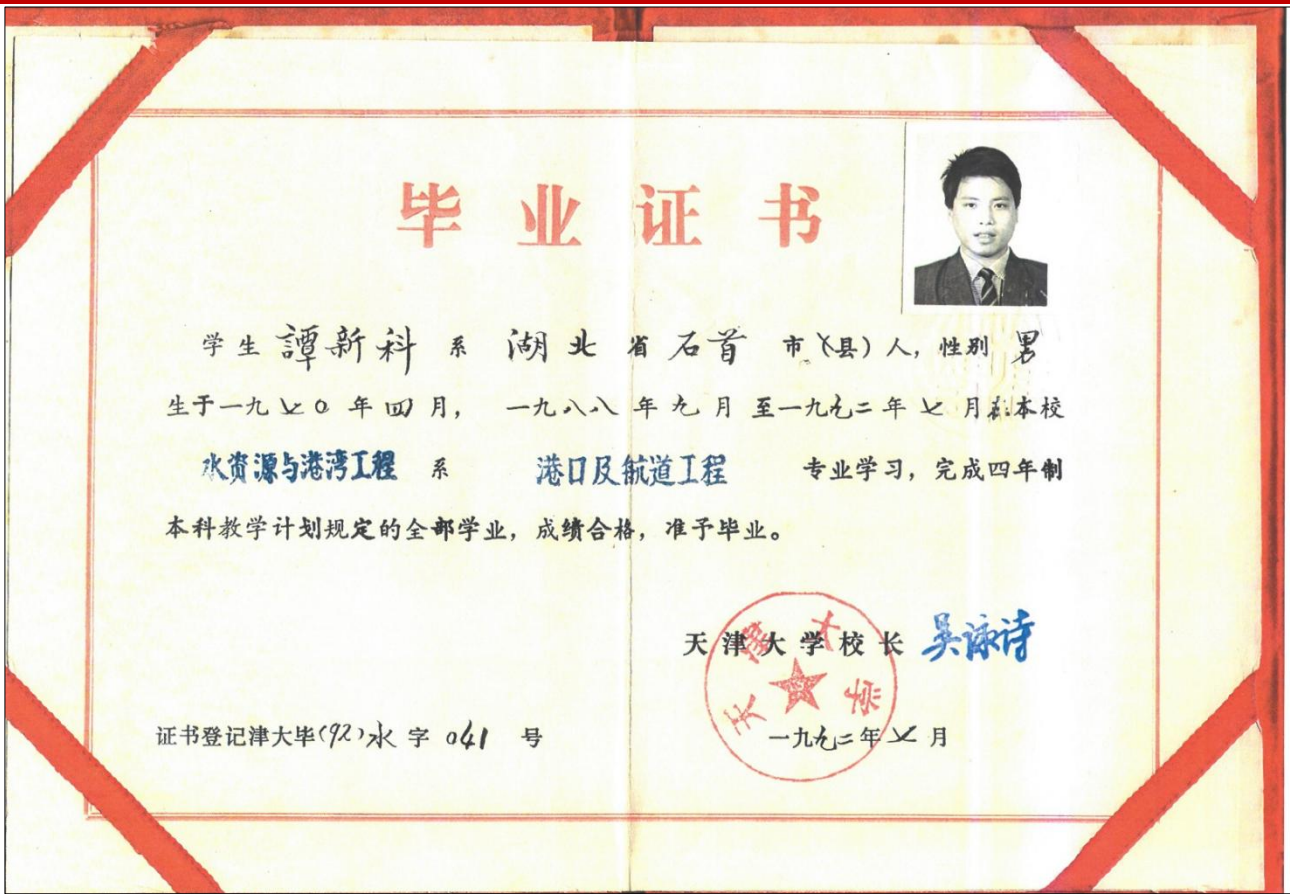 毕业证书
学生 譚新科 系 湖北 省 石首 市(县)人,性别 男
生于一九七0年四月, 一九八八年九月至一九九二年七月在本校
水资源与港湾工程 系 港口及航道工程 专业学习,完成四年制
本科教学计划规定的全部学业,成绩合格,准予毕业。
天津大学校长 吴咏诗
天津大学
证书登记津大毕(92)水字041号
一九九二年七月